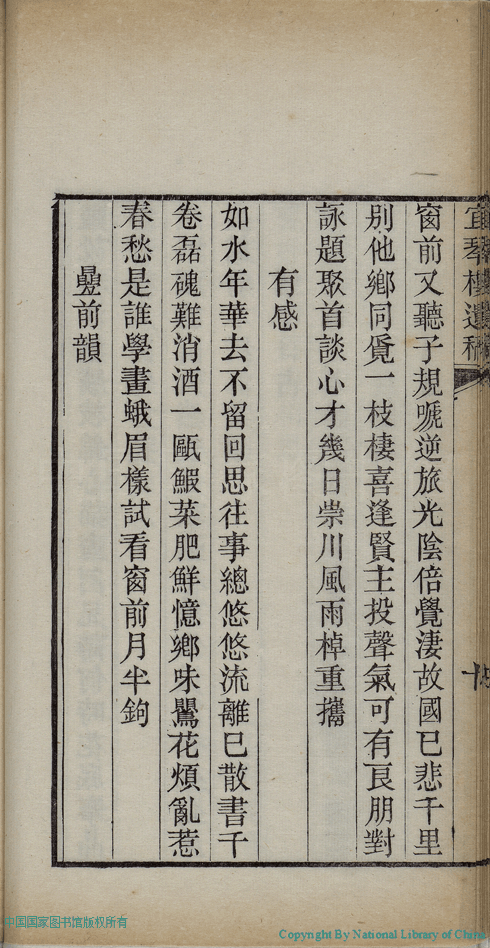 宜琴樓遺稿
窗前又聽子規嗁逆旅光陰倍覺淒故國已悲千里
別他鄉同覓一枝棲喜逢賢主投聲氣可有良朋對
詠題聚首談心才幾日崇川風雨棹重攜
有感
如水年華去不留回思往事總悠悠流離已散書千
卷磊磈難消酒一甌鰕菜肥鮮憶鄉味鸎花煩亂惹
春愁是誰學畫蛾眉樣試看窗前月半鉤
疊前韻
中国国家图书馆版权所有
Copyright By National Library of China